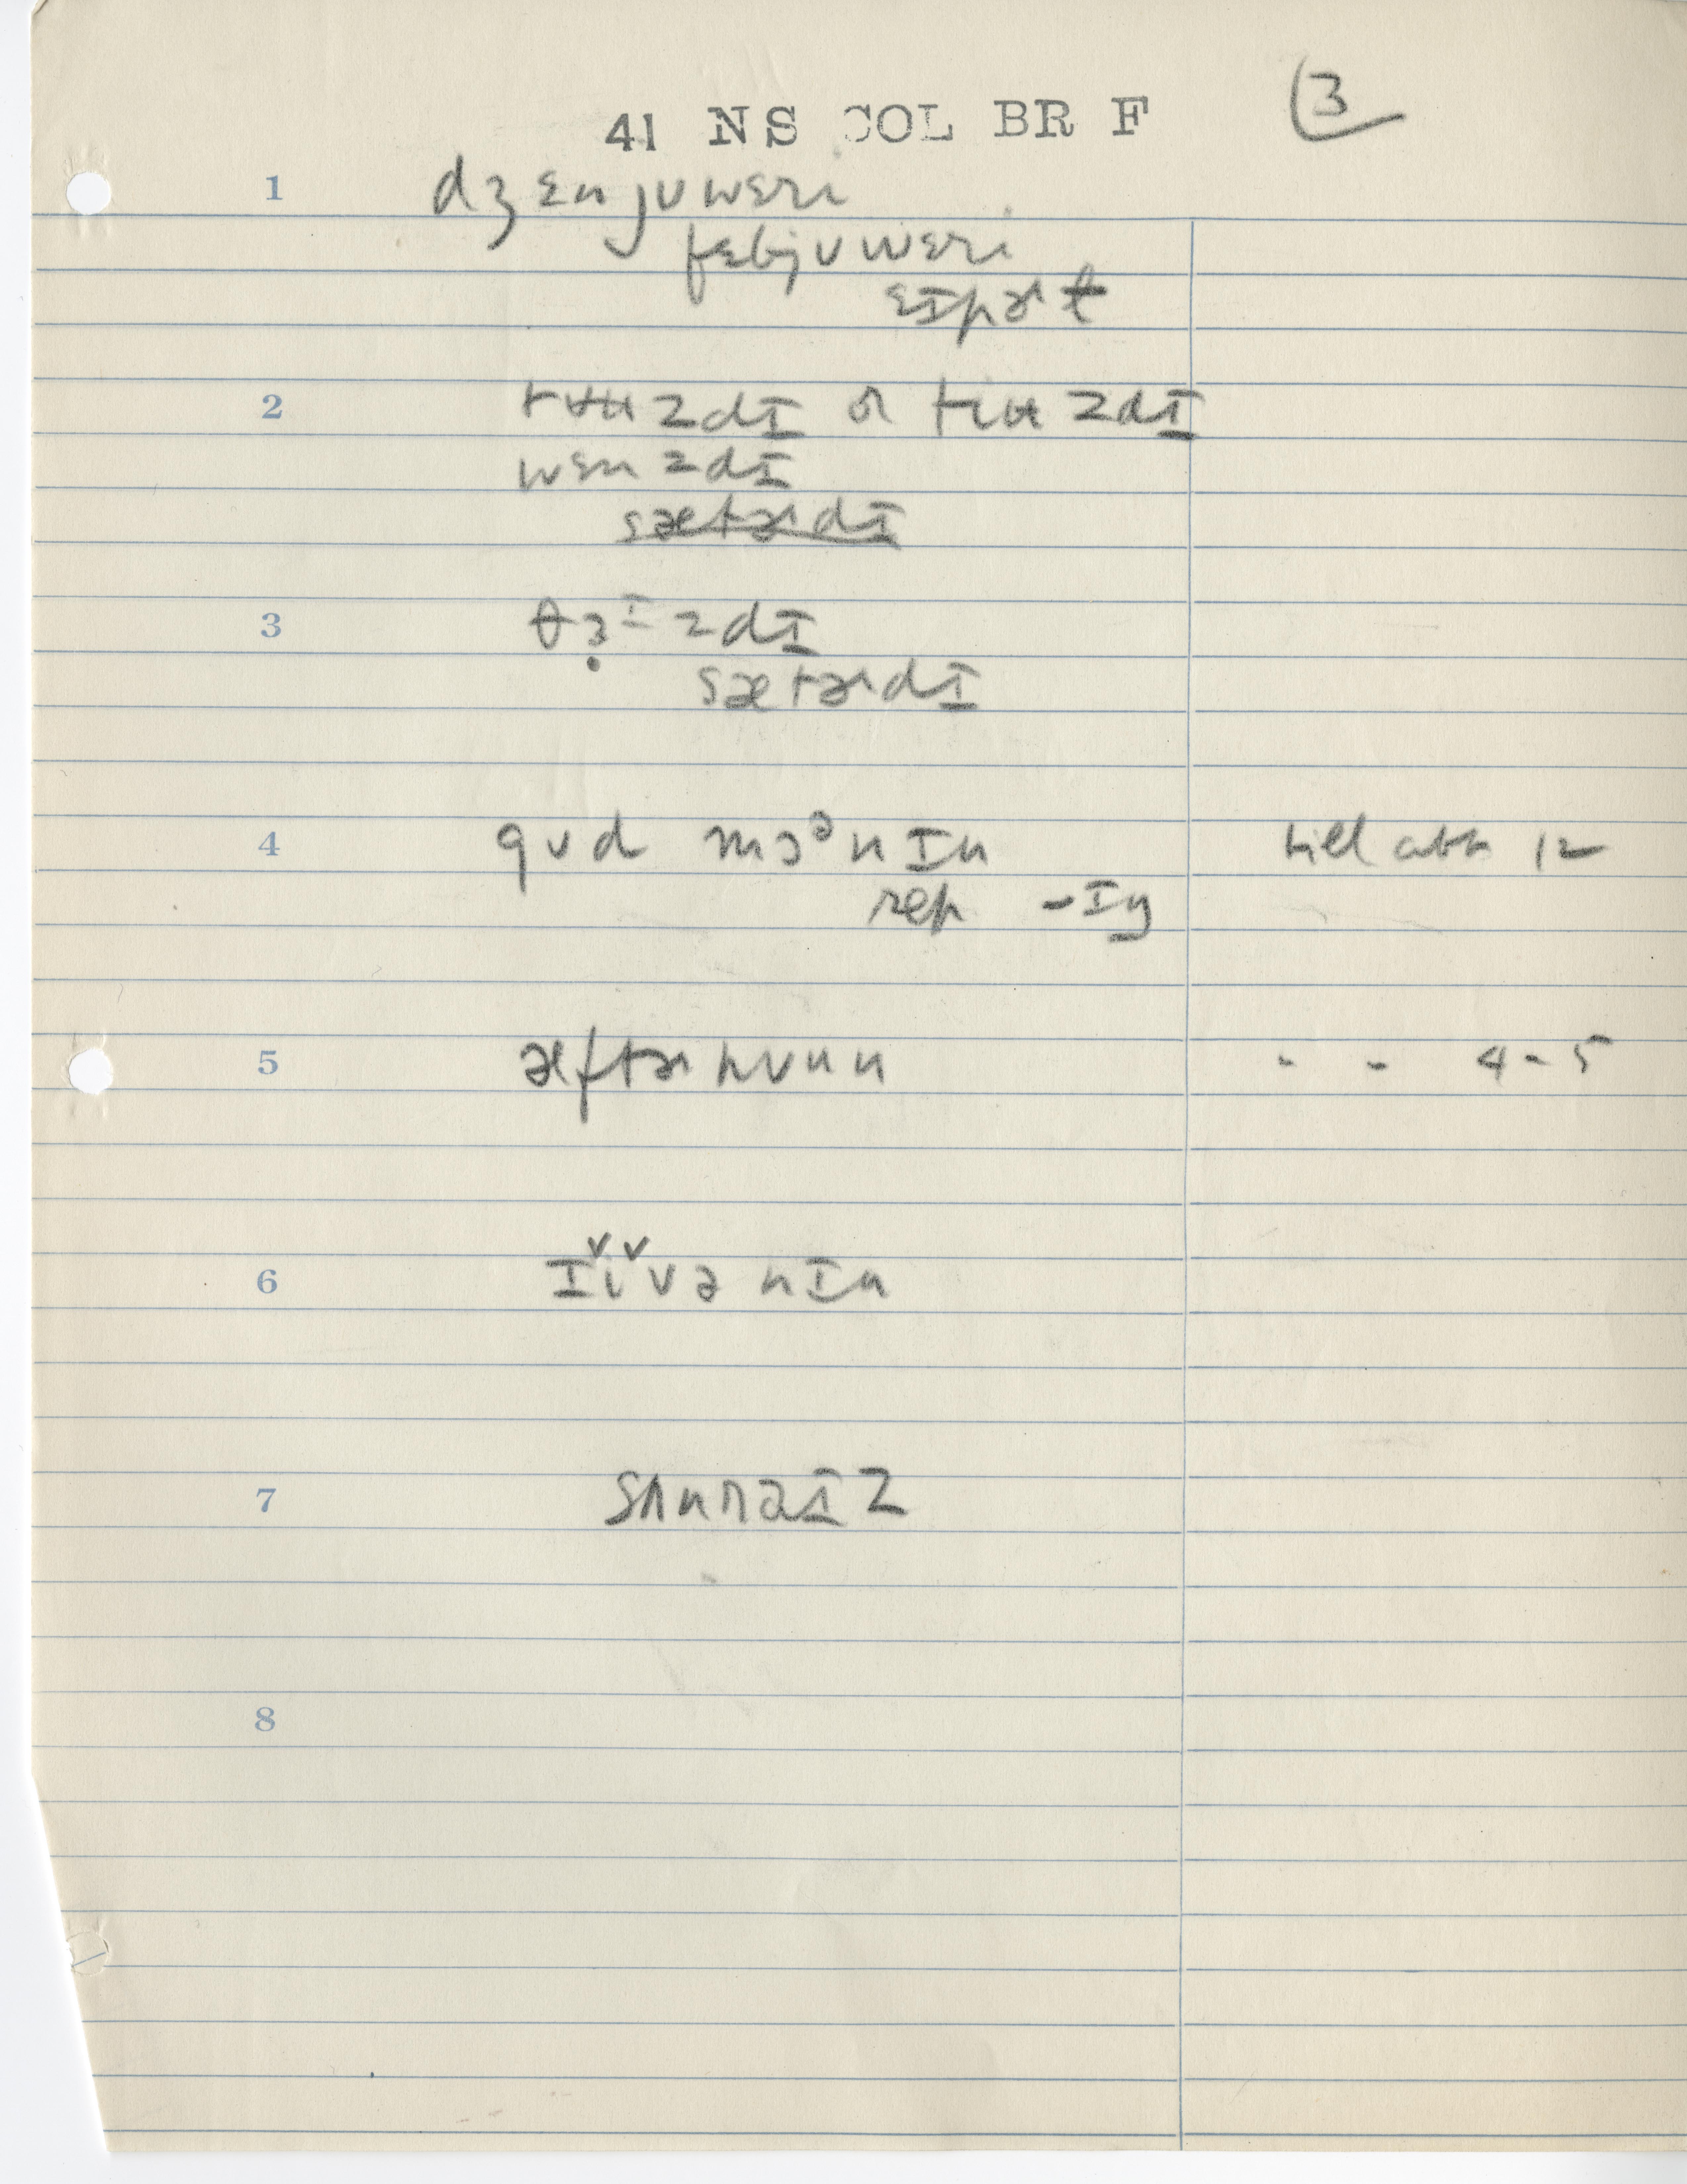 41 NS COL BR F
3
1 dʒɛnjʊwɛri
fɛbjʊwɛri
ɛɪprɚt
2 tʉʉzdɪ or tiʉzdɪ
wɛnzdɪ
sætɚdɪ
3 θɜ̣ɪzdɪ
sætɚdɪ
4 gʊd mɔᵊnɪn till abt 12
rep -ɪŋ
5 æftɚnʊun " " 4-5
6 ɪ̌ǐvənɪn
7 sʌnraɪz
8